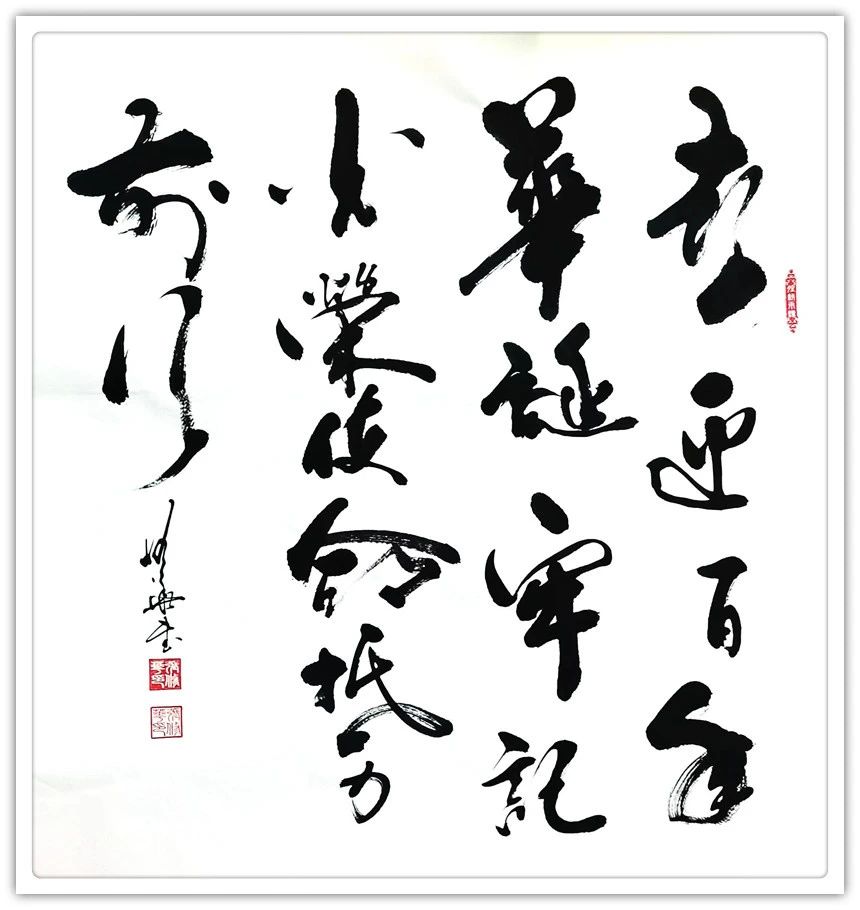 喜迎百年
華誕牢記
光榮使命
前行